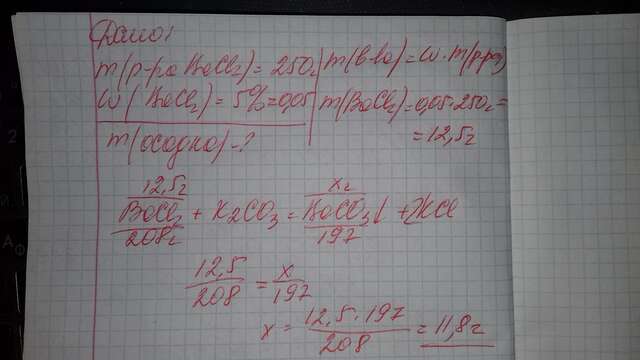 Дано:
m(р-ра BaCl2) = 250г
w(BaCl2) = 5% = 0,05
m(осадка) - ?
m(в-ва) = w · m(р-ра)
m(BaCl2) = 0,05 · 250г =
= 12,5г
12,5г xг
BaCl2 + K2CO3 = BaCO3↓ + 2KCl
208г 197
12,5/208 = x/197
x = 12,5 · 197/208 = 11,8г